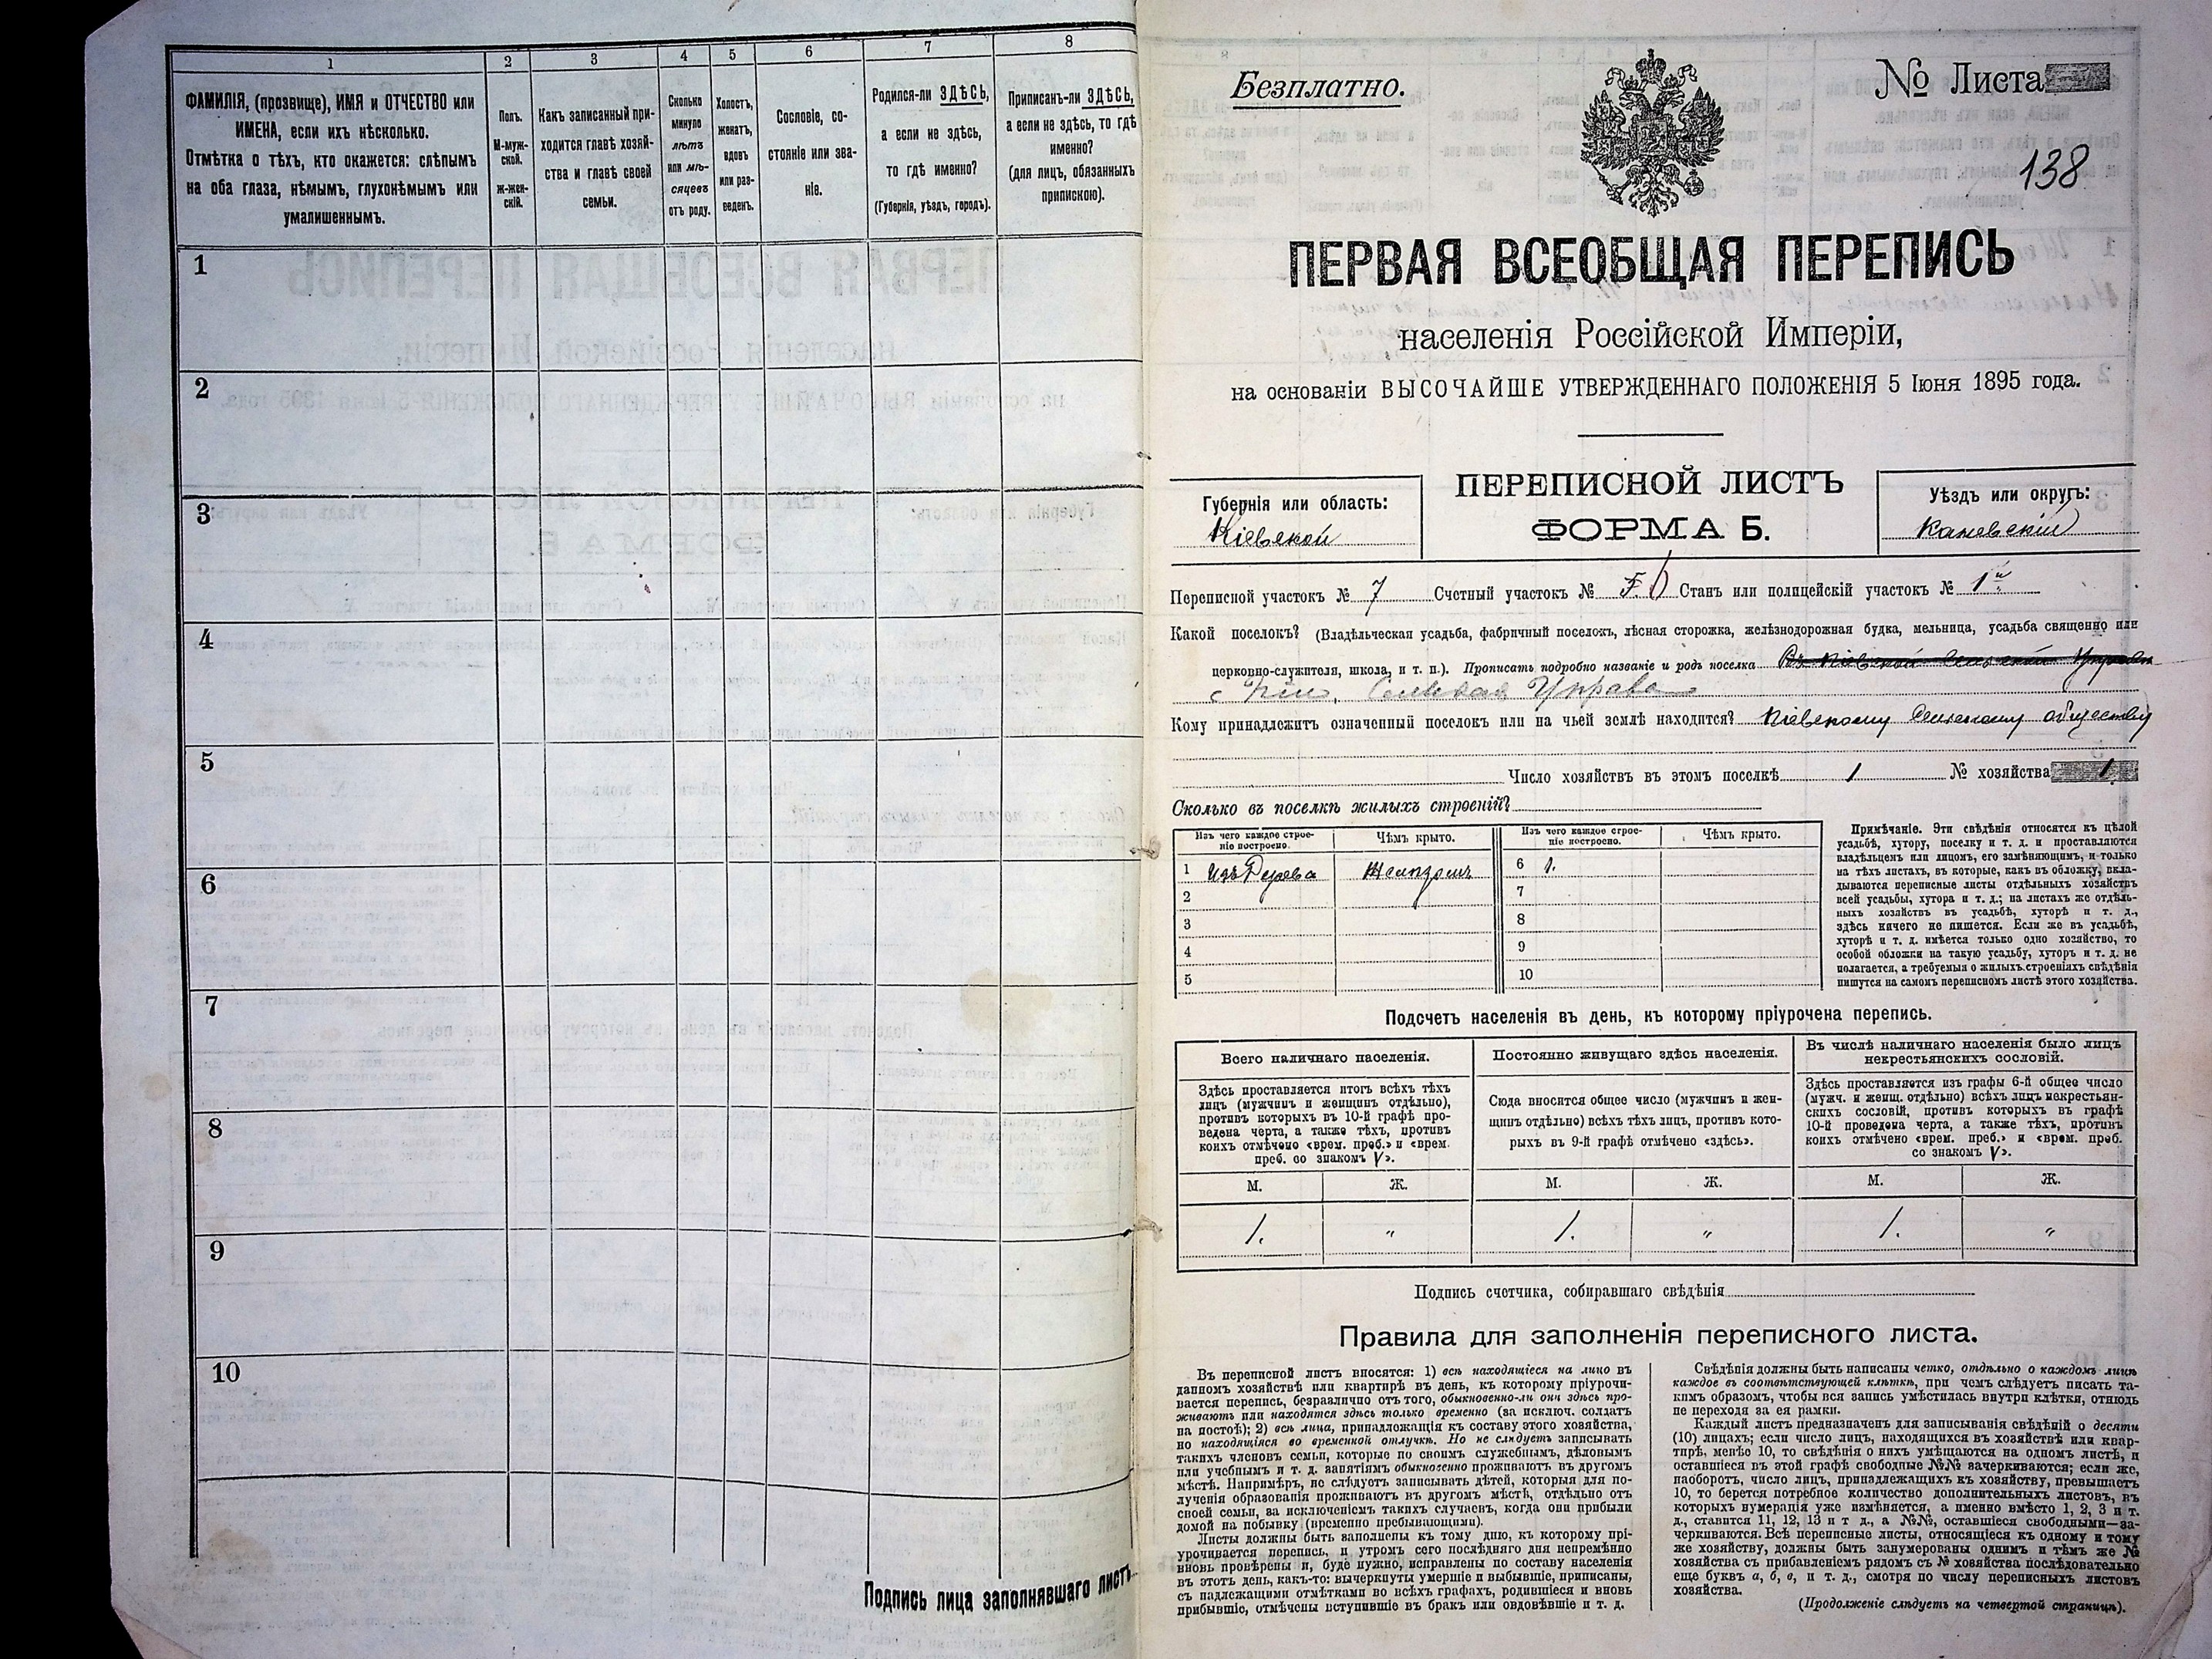 1
2
3
4
5
6
7
8
ФАМИЛІЯ, (прозвище), ИМЯ и ОТЧЕСТВО или
ИМЕНА, если ихъ нѣсколько.
Отмѣтка о тѣхъ, кто окажется: слѣпымъ
на оба глаза, нѣмымъ, глухонѣмымъ или
умалишеннымъ.
Полъ.
М-муж-
ской.
ж-жен-
скій.
Какъ записанный при-
ходится главѣ хозяй-
ства и главѣ своей
семьи.
Сколько
минуло
лѣтъ
или мѣ-
сяцевъ
отъ роду.
Холостъ,
женатъ,
вдовъ
или раз-
веденъ.
Сословіе, со-
стояніе или зва-
ніе.
Родился-ли ЗДѢСЬ,
а если не здѣсь,
то гдѣ именно?
(Губернія, уѣздъ, городъ).
Приписанъ-ли ЗДѢСЬ,
а если не здѣсь, то гдѣ
именно?
(для лицъ, обязанныхъ
припискою).
1
2
3
4
5
6
7
8
9
10
Подпись лица заполнявшаго листъ
Безплатно.
№ Листа
138
ПЕРВАЯ ВСЕОБЩАЯ ПЕРЕПИСЬ
населенія Россійской Имперіи,
на основаніи ВЫСОЧАЙШЕ УТВЕРЖДЕННАГО ПОЛОЖЕНІЯ 5 Іюня 1895 года.
Губернія или область:
Кіевской
ПЕРЕПИСНОЙ ЛИСТЪ
ФОРМА Б.
Уѣздъ или округъ:
Каневскій
Переписной участокъ № 7 Счетный участокъ № Станъ или полицейскій участокъ № 1й
Какой поселокъ? (Владѣльческая усадьба, фабричный поселокъ, лѣсная сторожка, желѣзнодорожная будка, мельница, усадьба священно или
церковно-служителя, школа, и т. п.). Прописать подробно названіе и родъ поселка
Управа
Кому принадлежитъ означенный поселокъ или на чьей землѣ находится? обществу
Число хозяйствъ въ этомъ поселкѣ 1 № хозяйства 1
Сколько въ поселкѣ жилыхъ строеній?
Изъ чего каждое строе-
ніе построено.
Чѣмъ крыто.
Изъ чего каждое строе-
ніе построено.
Чѣмъ крыто.
1 Изъ Дерева
6 1.
2
7
3
8
4
9
5
10
Примѣчаніе. Эти свѣдѣнія относятся къ цѣлой
усадьбѣ, хутору, поселку и т. д. и проставляются
владѣльцемъ или лицомъ, его замѣняющимъ, и только
на тѣхъ листахъ, въ которые, какъ въ обложку, вкла-
дываются переписные листы отдѣльныхъ хозяйствъ
всей усадьбы, хутора и т. д.; на листахъ же отдѣль-
ныхъ хозяйствъ въ усадьбѣ, хуторѣ и т. д.,
здѣсь ничего не пишется. Если же въ усадьбѣ,
хуторѣ и т. д. имѣется только одно хозяйство, то
особой обложки на такую усадьбу, хуторъ и т. д. не
полагается, а требуемыя о жилыхъ строеніяхъ свѣдѣнія
пишутся на самомъ переписномъ листѣ этого хозяйства.
Подсчетъ населенія въ день, къ которому пріурочена перепись.
Всего наличнаго населенія.
Здѣсь проставляется итогъ всѣхъ тѣхъ
лицъ (мужчинъ и женщинъ отдѣльно),
противъ которыхъ въ 10-й графѣ про-
ведена черта, а также тѣхъ, противъ
коихъ отмѣчено «врем. преб.» и «врем.
преб. со знакомъ V».
Постоянно живущаго здѣсь населенія.
Сюда вносится общее число (мужчинъ и жен-
щинъ отдѣльно) всѣхъ тѣхъ лицъ, противъ кото-
рыхъ въ 9-й графѣ отмѣчено «здѣсь».
Въ числѣ наличнаго населенія было лицъ
некрестьянскихъ сословій.
Здѣсь проставляется изъ графы 6-й общее число
(мужч. и женщ. отдѣльно) всѣхъ лицъ некрестьян-
скихъ сословій, противъ которыхъ въ графѣ
10-й проведена черта, а также тѣхъ, противъ
коихъ отмѣчено «врем. преб.» и «врем. преб.
со знакомъ V».
М. Ж. М. Ж. М. Ж.
1. „ 1. „ 1. „
Подпись счетчика, собиравшаго свѣдѣнія
Правила для заполненія переписного листа.
Въ переписной листъ вносятся: 1) всѣ находящіеся на лицо въ
данномъ хозяйствѣ или квартирѣ въ день, къ которому пріурочи-
вается перепись, безразлично отъ того, обыкновенно-ли они здѣсь про-
живаютъ или находятся здѣсь только временно (за исключ. солдатъ
на постоѣ); 2) всѣ лица, принадлежащія къ составу этого хозяйства,
но находящіяся во временной отлучкѣ. Но не слѣдуетъ записывать
такихъ членовъ семьи, которые по своимъ служебнымъ, дѣловымъ
или учебнымъ и т. д. занятіямъ обыкновенно проживаютъ въ другомъ
мѣстѣ. Напримѣръ, не слѣдуетъ записывать дѣтей, которыя для по-
лученія образованія проживаютъ въ другомъ мѣстѣ, отдѣльно отъ
своей семьи, за исключеніемъ такихъ случаевъ, когда они прибыли
домой на побывку (временно пребывающими).
Листы должны быть заполнены къ тому дню, къ которому прі-
урочивается перепись, и утромъ сего послѣдняго дня непремѣнно
вновь провѣрены и, буде нужно, исправлены по составу населенія
въ этотъ день, какъ-то: вычеркнуты умершіе и выбывшіе, приписаны,
съ надлежащими отмѣтками во всѣхъ графахъ, родившіеся и вновь
прибывшіе, отмѣчены вступившіе въ бракъ или овдовѣвшіе и т. д.
Свѣдѣнія должны быть написаны четко, отдѣльно о каждомъ лицѣ
каждое въ соотвѣтствующей клѣткѣ, при чемъ слѣдуетъ писать та-
кимъ образомъ, чтобы вся запись умѣстилась внутри клѣтки, отнюдь
не переходя за ея рамки.
Каждый листъ предназначенъ для записыванія свѣдѣній о десяти
(10) лицахъ; если число лицъ, находящихся въ хозяйствѣ или квар-
тирѣ, менѣе 10, то свѣдѣнія о нихъ умѣщаются на одномъ листѣ, и
оставшіеся въ этой графѣ свободные №№ зачеркиваются; если же,
наоборотъ, число лицъ, принадлежащихъ къ хозяйству, превышаетъ
10, то берется потребное количество дополнительныхъ листовъ, въ
которыхъ нумерація уже измѣняется, а именно вмѣсто 1, 2, 3 и т.
д., ставится 11, 12, 13 и т д., а №№, оставшіеся свободными—за-
черкиваются. Всѣ переписные листы, относящіеся къ одному и тому
же хозяйству, должны быть занумерованы однимъ и тѣмъ же №
хозяйства съ прибавленіемъ рядомъ съ № хозяйства послѣдовательно
еще буквъ а, б, в, и т. д., смотря по числу переписныхъ листовъ
хозяйства.
(Продолженіе слѣдуетъ на четвертой страницѣ).